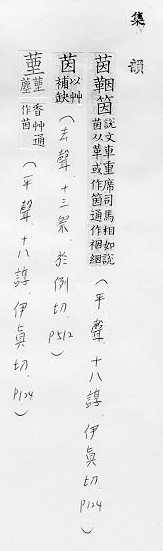 集韻
茵鞇筃 說文車重席司馬相如說茵从革或作筃通作裀絪(平聲.十八諄.伊真切.P124)
茵 以艸補缺(去聲.十三祭.於例切.P512)
䓰 香艸通作茵(平聲.十八諄.伊真切.P124)